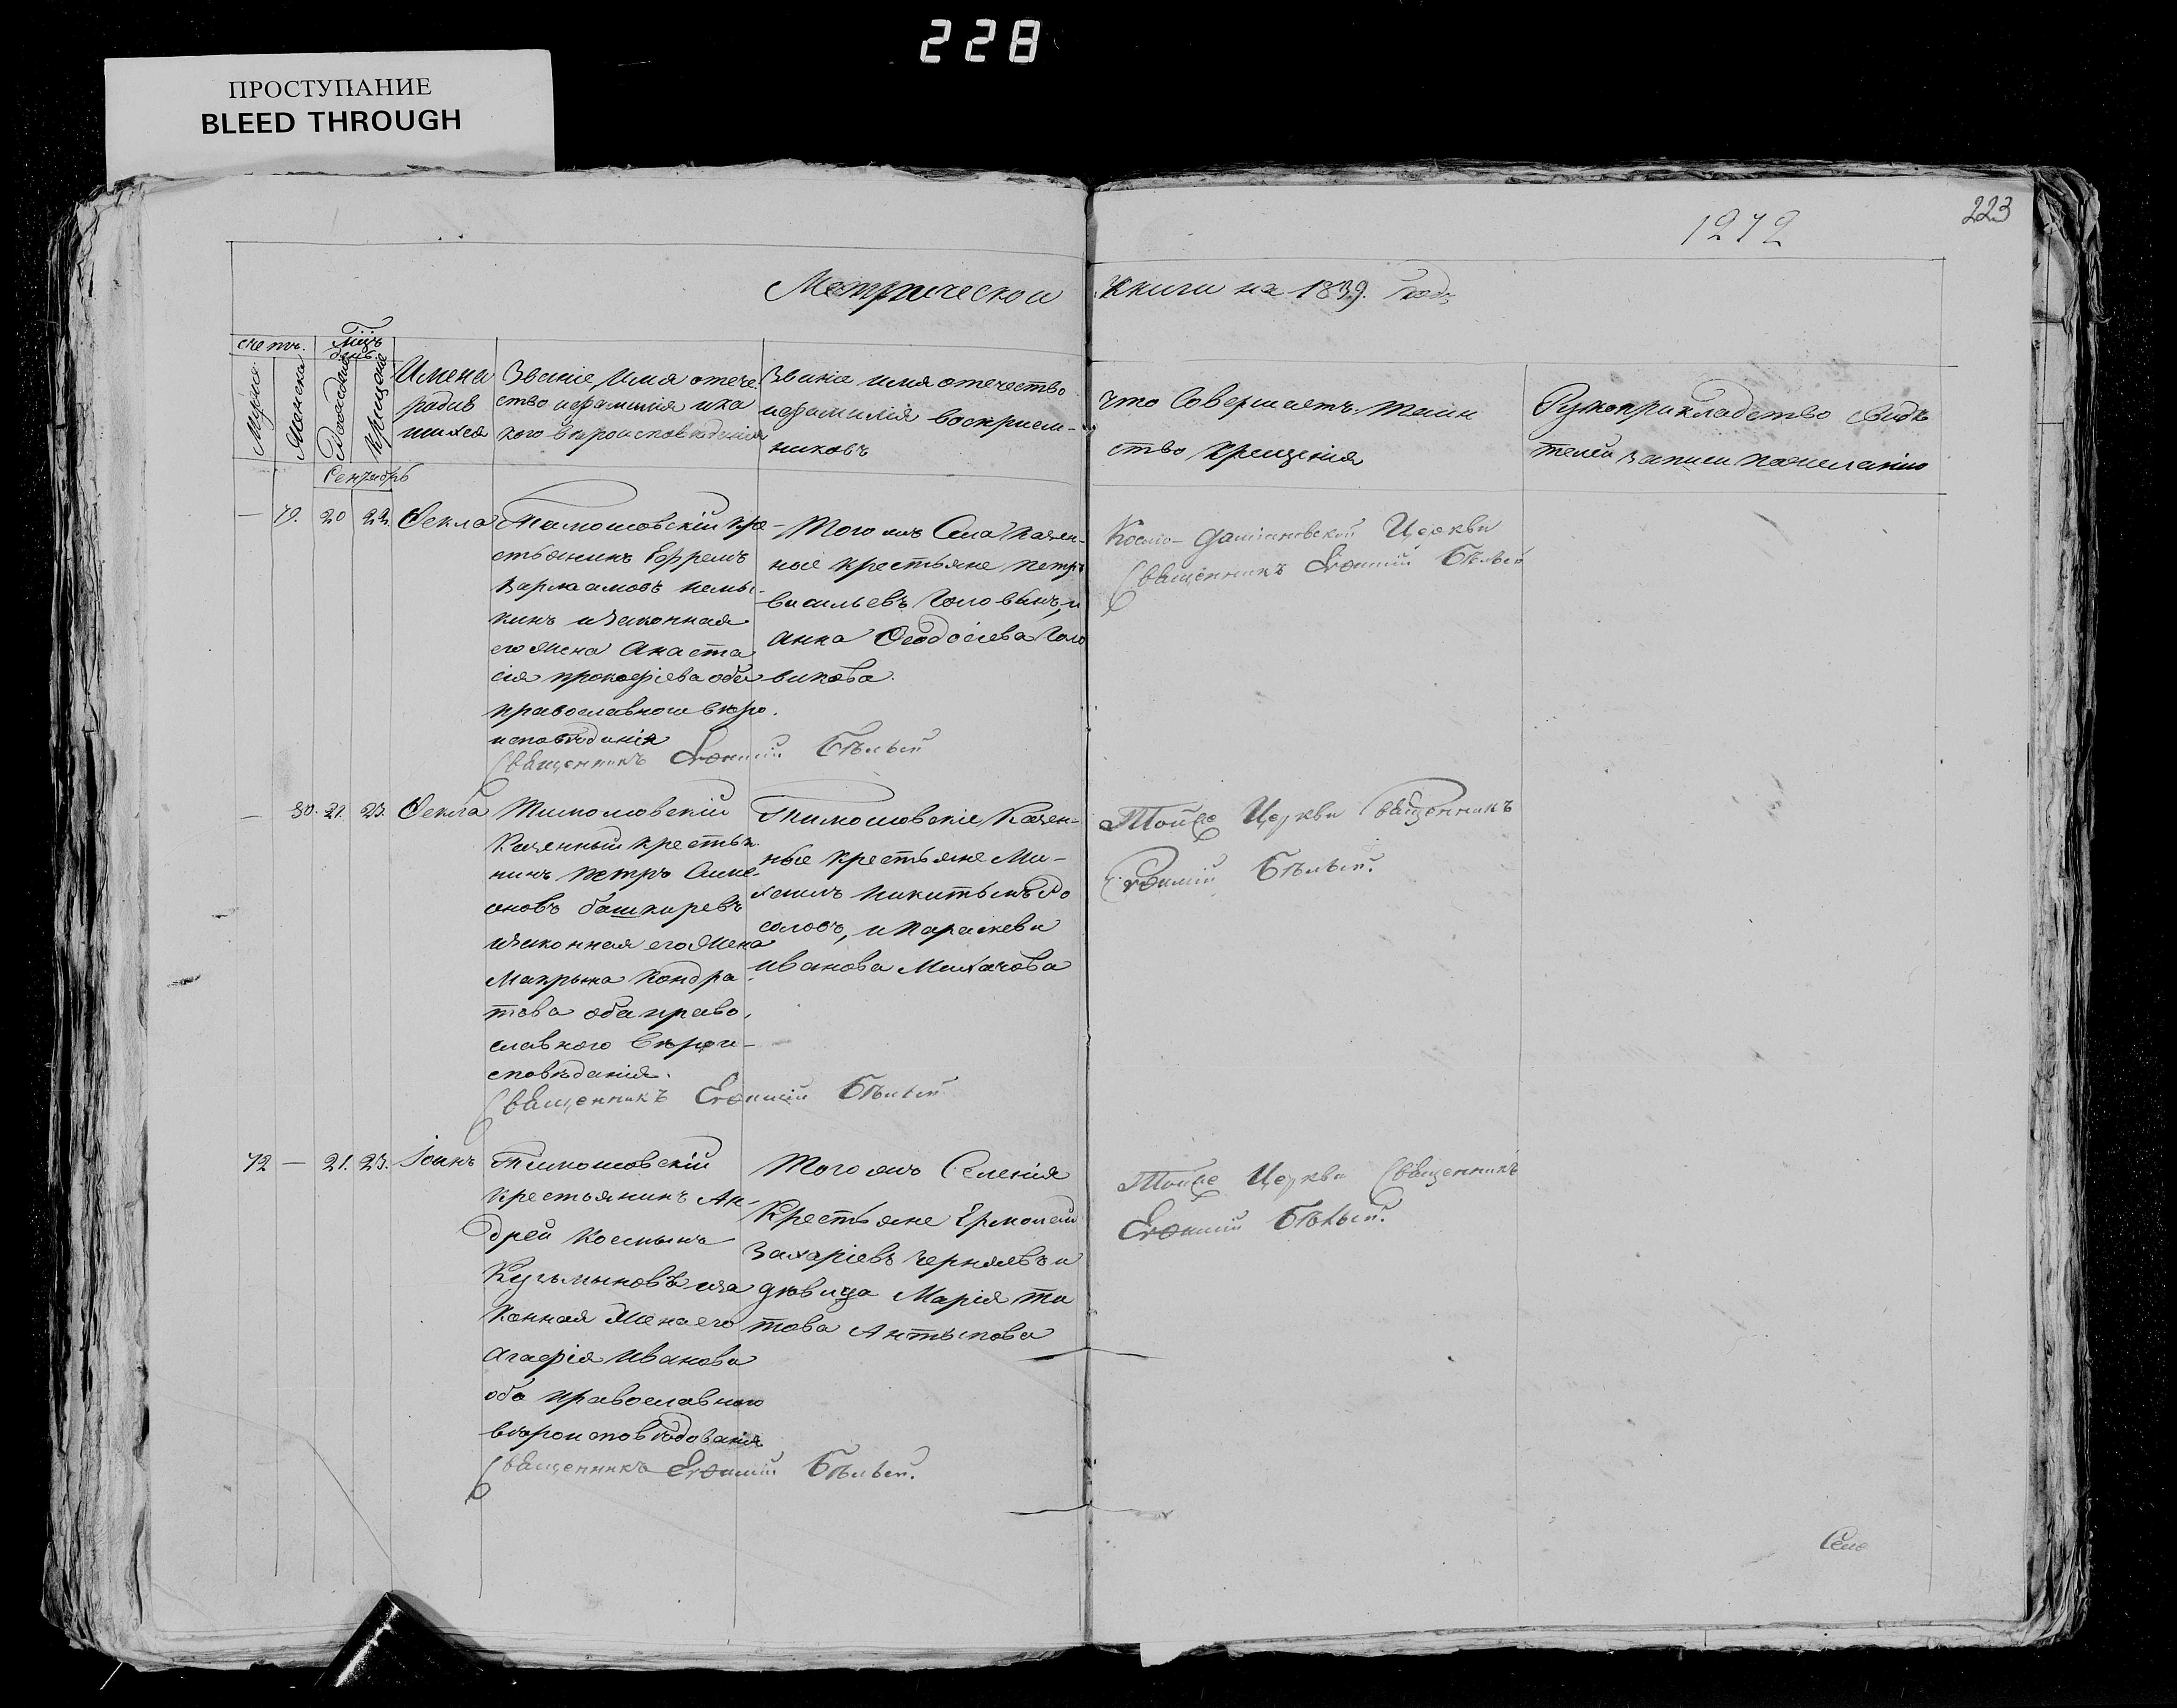 228
ПРОСТУПАНИЕ
BLEED THROUGH
223
1212
Метрической книги на 1839. годъ
счетъ. Мцъ день.
Мужеск Женска Рожденія Крещенія
Имена родив шихся
Званіе, Имя отече
ство ифамилія ика
кого вѣроисповѣданія
Званіе имя отечество
ифамилія восприем-
никовъ
что Совершалъ Таин
ство крещенія
Рукоприкладство Свидѣ
телей записи пожеланію
Сентябрь
— 79. 20 22. Ѳекла
Тимошовскій кре-
стьянинъ Ефремъ
Варлаамовъ
кинъ изаконная
его жена Анаста
сія прокофіева оба
православнаго вѣро.
исповѣданія
Священникъ Евѳимій Бѣлый
Того жъ Села Казен-
ные крестьяне петръ
васильевъ Головинъ, и
анна Ѳеодосіева Голо
викова.
Космо-Даміановской Церкви
Священникъ Евѳимій Бѣлый
— 80. 21. 23. Ѳекла
Тимошовскій
Казенный крестья
нинъ петръ Симе-
оновъ башкиревъ
изаконная его жена
Макрына Кондра
това оба право,
славнаго вѣрои-
сповѣданія.
Священникъ Евѳимій Бѣлый
Тимошовскіе Казен-
ные крестьяне Ми-
хаилъ никитинъ
соловъ, и параскева
иванова
Тойже Церкви Священникъ
Евѳимій Бѣлый.
72 — 21. 23. Іоанъ
Тимошовскій
крестьянинъ Ан-
дрей Космынъ
Кузьмыновъ иза
конная жена его
Агафія иванова
оба православнаго
вѣроисповѣдованія
Священникъ Евѳимій Бѣлый.
Того жъ Селенія
Крестьяне Ермолай
Захаріевъ Чернявъ и
дѣвица Марія ти
това Антыпова
Тойже Церкви Священникъ
Евѳимій Бѣлый.
Село